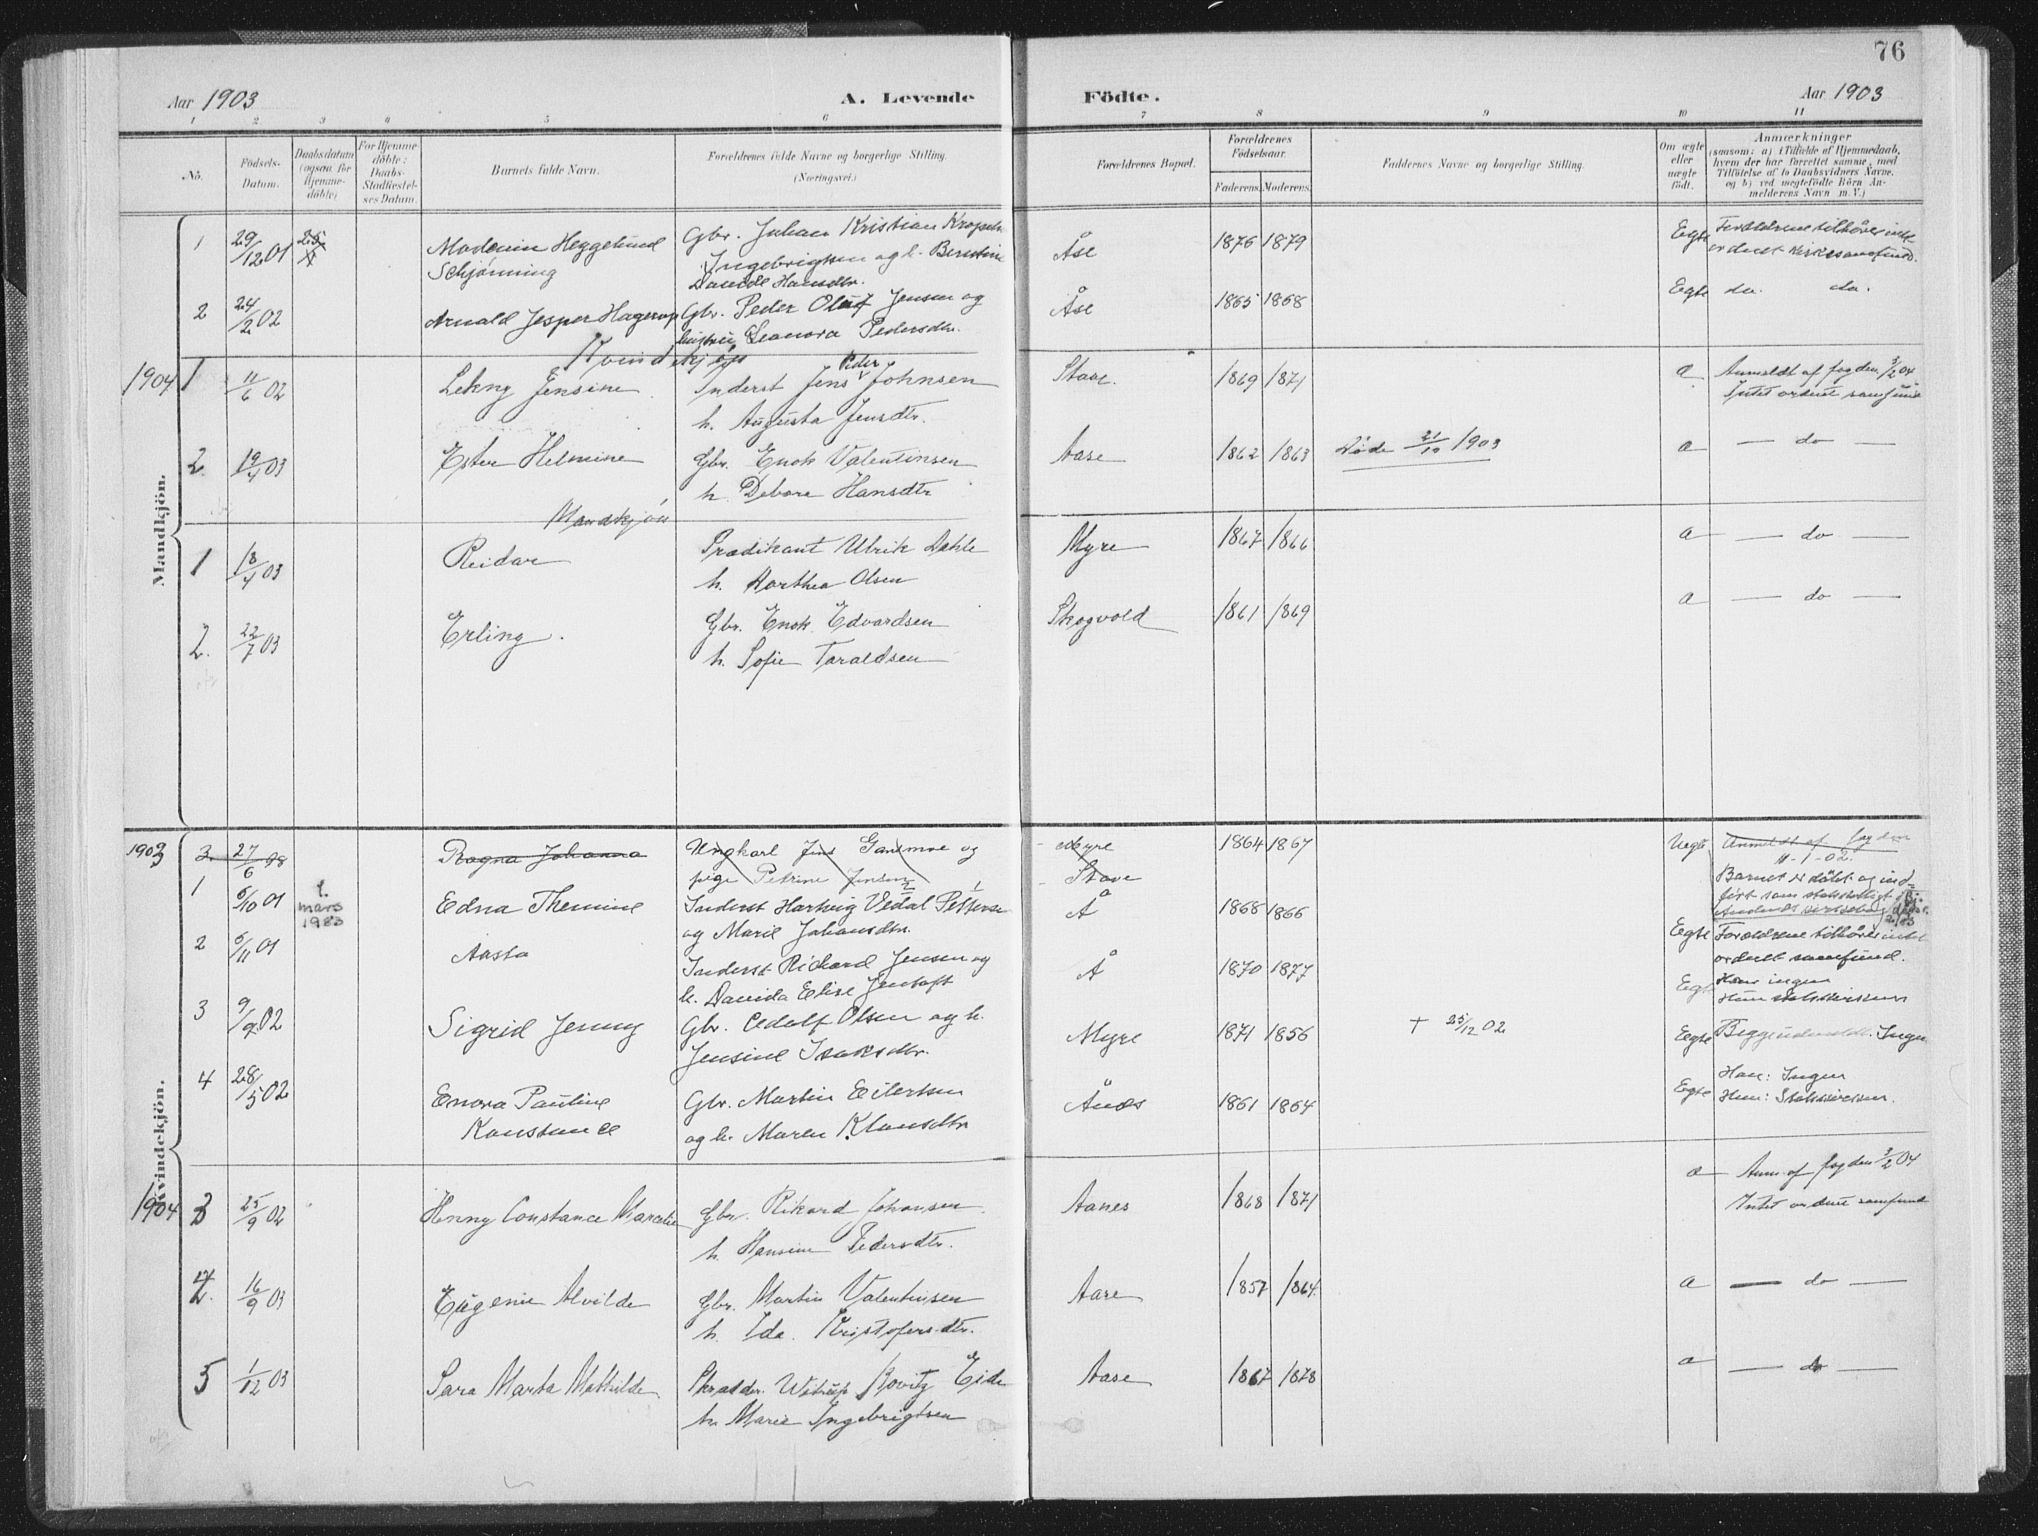 76
Aar 1903
A. Levende
Födte.
Aar 1903
1 2 3 4 5 6 7 8 9 10 11
No.
Födsels-
Datum.
Daabsdatum
(ogsaa for
Hjemme-
döbte)
For Hjemme-
döbte:
Daabs-
Stadfæstel-
ses Datum.
Barnets fulde Navn.
Forældrenes fulde Navne og borgerlige Stilling.
(Næringsvei.)
Forældrenes Bopæl.
Forældrenes
Födselsaar.
Faderens. Moderens.
Faddernes Navne og borgerlige Stilling.
Om ægte
eller
uægte
födt.
Anmærkninger
(saasom: a) i Tilfælde af Hjemmedaab,
hvem der har forrettet samme, med
Tilföielse af to Daabsvidners Navne.
og b) ved uegtefödte Börn An-
melderens Navn m. V.)
Mandkjön.
1 29/12 01 Heggelund Gbr. Johan Kristian
Schjønning Ingebrigtsen og h.
Hansdtr.
Åse 1876 1879 Egte Forældrene tilhører intet
ordnet kirkesamfund.
2 24/2 02 Arnald Jesper Hagerup Gbr. Peder Oluf Jensen og
hustru Leonora Pedersdtr.
Åse 1865 1868 Egte do. do.
Kvindekjøn
1904 1 11/6 02 Lekny Jensine Inderst Jens Peder Johnsen
h. Augusta Jensdtr.
Stave. 1869 1871 a Anmeldt af fogden 3/2 04
Intet ordnet samfund
2. 19/4 03 Ester Helmine Gbr. Enok Valentinsen
h. Debora Hansdtr
Aase 1862 1863 Døde 21/10 1903 a do
Mandkjøn
1 18/4 03 Reidar Prædikant Ulrik Dahle
h. Dorthea Olsen
Myre 1867 1866 a do
2. 22/7 03 Erling. Gbr. Enok Edvardsen
h. Sofie Taraldsen
Skogvold 1861 1869 a do
Kvindekjön.
1903 3. 27/6 98 Ragna Johanna Ungkarl Jens og
pige Petrine Jensen
Myre
Stave
1864 1867 Uegte Anmeldt af fogden
11-1-02.
Barnet er døbt og ind-
ført som
1 6/10 01 1. mars 1983 Edna Themine Inderst Hartvig Vedal Pettersen
og Marie Johansdtr.
Å 1868 1866 Egte Forældrene tilhører intet
ordnet samfund.
2 6/11 01 Aasta Inderst Rickard Jensen og
h. Davida Elise Jentoft
Å 1870 1877 Egte Han ingen
Hun statskirken
3 9/9 02 Sigrid Jenny Gbr. Adolf Olsen og h.
Jensine Isaksdtr.
Myre 1871 1856 † 25/12 02 Egte Begge udmeldt. Ingen
4 28/5 02 Enora Pauline Gbr. Martin Eilertsen
Konstance og h. Maren Klausdtr
Ånes 1861 1864 Egte Han: Ingen
Hun: Statskirken.
1904 3 25/9 02 Henny Constance Marcelie Gbr. Rikard Johansen
h. Hansine Pedersdtr.
Aanes 1868 1871 a Anm. af fogden 3/2 04
Intet ordnet samfund
4. 16/9 03 Eugenie Alvilde Gbr. Martin Valentinsen
h. Ida Kristofersdtr.
Aase 1857 1864. a do
5 1/12 03 Sara Marta Mathilde Skrædder. Eide
h. Marie Ingebrigtsen
Aase 1867 1878 a do